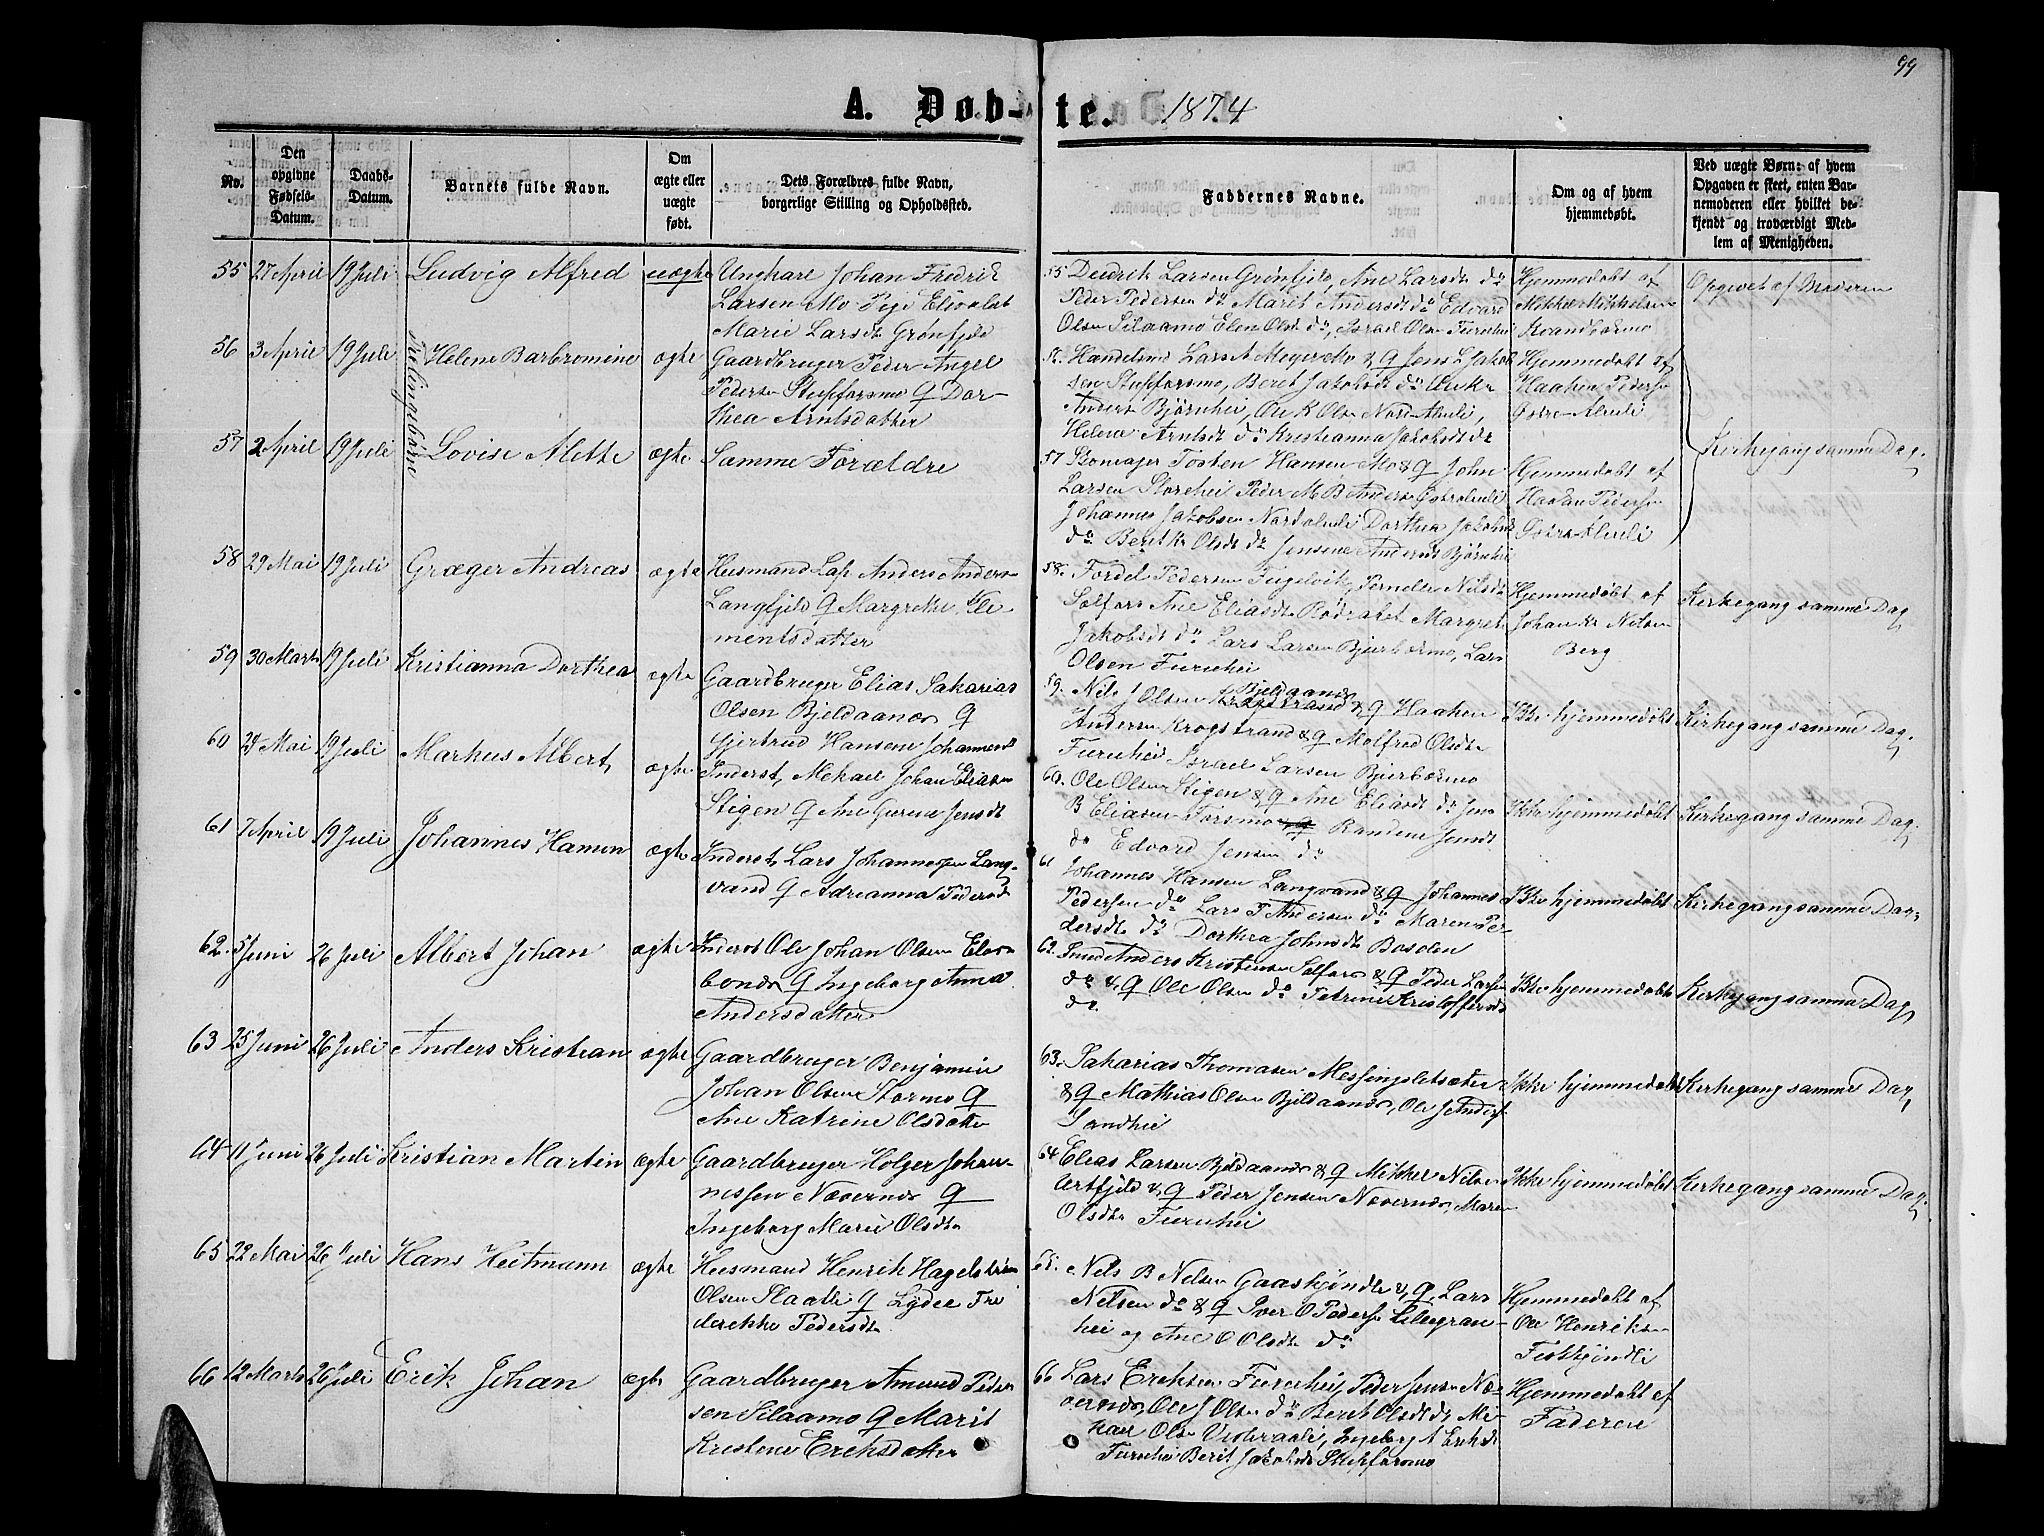 99
A. Døbte. 1874
No.
Den opgivne Fødsels-Datum.
Daabs-Datum.
Barnets fulde Navn.
Om ægte eller uægte født.
Dets Forældres fulde Navn, borgerlige Stilling og Opholdssted.
Faddernes Navne.
Om og af hvem hjemmedøbt.
Ved uægte Børn: af hvem Opgaven er skeet, enten Barnemoderen eller hvilket bekjendt og troværdigt Medlem af Menigheden.
55 27 April 19 Juli Ludvig Alfred uægte
Ungkarl Johan Fredrik
Larsen Mo Pige
Marie Larsdt Grønfjeld
55 Dedrik Larsen Grønfjeld, Ane Larsdt do
Peder Pedersen do Marit Andersdt do Edvard
Olsen Silaamo Elen Olsdt do, Israel Olsen Furuhei
Hjemmedøbt af
Mikkel Mikkelsen
Opgivet af Moderen
56 3 April 19 Juli Tvillingebørn Helene Barbromine ægte
Gaardbruger Peder Angel
Pedersen Stupforsmo & Dor-
thea Arntsdatter
56. Handelsmd Lars Meyer Mo & Jens L Jakob
sen Stupforsmo, Beret Jakobsdt do Enke
Anders Bjørnhei, Ole K Olsen Nord-Aluli,
Helene Arntsdt do Kristianna Jakobsdt do
Hjemmedøbt af
Haaken Pedersen
Østre-Aluli
Kirkegang samme Dag.
57 2 April 19 Juli Lovise Mette ægte
Samme Forældre
57 Tosten Hansen Mo & John
Larsen Storhei Peder M B Anders Østraluli
Johannes Jakobsen Nordaluli Dorthea Jakobsdt
do Beret Kr Olsdt do Jensine Andersdt Bjørnhei
Hjemmedøbt af
Haakan Pedersen
Østre-Aluli
58 29 Mai 19 Juli Græger Andreas ægte
Husmand Lap Anders Andersen
Langfjeld & Margrethe Kle
mentsdatter
58. Fordel Pedersen Fugelvik, Pernelle Nilsdt
Selfors Ane Eliasdt Rødvatnet Margret
Jakobsdt do Lars Larsen Bjerbærmo, Lars
Olsen Furuhei
Hjemmedøbt af
Johan Kr Nilsen
Berg
Kirkegang samme Dag
59 30 Marts 19 Juli Kristianna Dorthea ægte
Gaardbruger Elias Sakarias
Olsen Bjeldaanes &
Gjertrud Hansine Johannesdt
59. Nils J Olsen Bjeldaanes & Haaken
Andersen Krogstrand & Molfred Olsdtr
Furuhei Israel Larsen Bjerbærmo
Ikke hjemmedøbt
Kirkegang samme Dag.
60 24 Mai 19 Juli Markus Albert ægte
Inderst, Mikael Johan Eliasen
Stigen & Ane Gurine Jensdt
60. Ole Olsen Stigen & Ane Eliasdt do Jens
B Eliasen Forsmo Randine Jensdt
do Edvard Jensen do
Ikke hjemmedøbt
Kirkegang samme Dag.
61 7 April 19 Juli Johannes Hamon ægte
Inderst, Lars Johannesen Lang-
vand & Adrianna Pedersdt
61 Johannes Hansen Langvand & Johannes
Pedersen do Lars P Andersen do Maren Pe-
dersdt do Dorthea Johnsdt Bosolen
Ikke hjemmedøbt
Kirkegang samme Dag.
62. 5 Juni 26 Juli Albert Johan ægte
Inderst Ole Johan Olsen
& Ingeborg Anna
Andersdatter
62. Anders Kristensen Selfors & Peder Larsen
do & Ole Olsen do Petrine Kristoffersdt
do
Ikke hjemmedøbt
Kirkegang samme Dag
63 25 Juni 26 Juli Anders Kristian ægte
Gaardbruger Benjamin
Johan Olsen Stormo &
Ane Katrine Olsdatter
63. Sakarias Thomasen Messingsletsæter
& Mathias Olsen Bjeldaanes, Ole J Anders
Sandhei
Ikke hjemmedøbt
Kirkegang samme Dag
64 11 Juni 26 Juli Kristian Martin ægte
Gaardbruger Holger Johan-
nessen Nævernes &
Ingeborg Marie Olsdtr
64 Elias Larsen Bjeldaanes & Mikkel Nilsen
Urtfjeld & Peder Jensen Næverneso, Maren
Olsdtr Furuhei
Ikke hjemmedøbt
Kirkegang samme Dag
65 22 Mai 26 Juli Hans Heitmann ægte
Husmand Henrik Hagelstein
Olsen Slaatli & Lydie Fre
derekke Pedersdtr
65. Nils B Nilsen Gaaskjønli & Lars
Nilsen do & Iver O Peders Lillegran-
hei og Ane O Olsdtr do
Hjemmedøbt af
Ole Henriksen
Fiskkjønli
66 12 Marts 26 Juli Erik Johan ægte
Gaardbruger Amund Peder
sen Silaamo & Marit
Kristine Eriksdatter
66 Lars Eriksen Furuhei, Peder Jensen Næ-
vernes, Ole J Olsen do Beret Olsdt do Mi-
kael Olsen Ingeborg A Eriksdt
Furuhei Berit Jakobsdt Stupforsmo
Hjemmedøbt af
Faderen